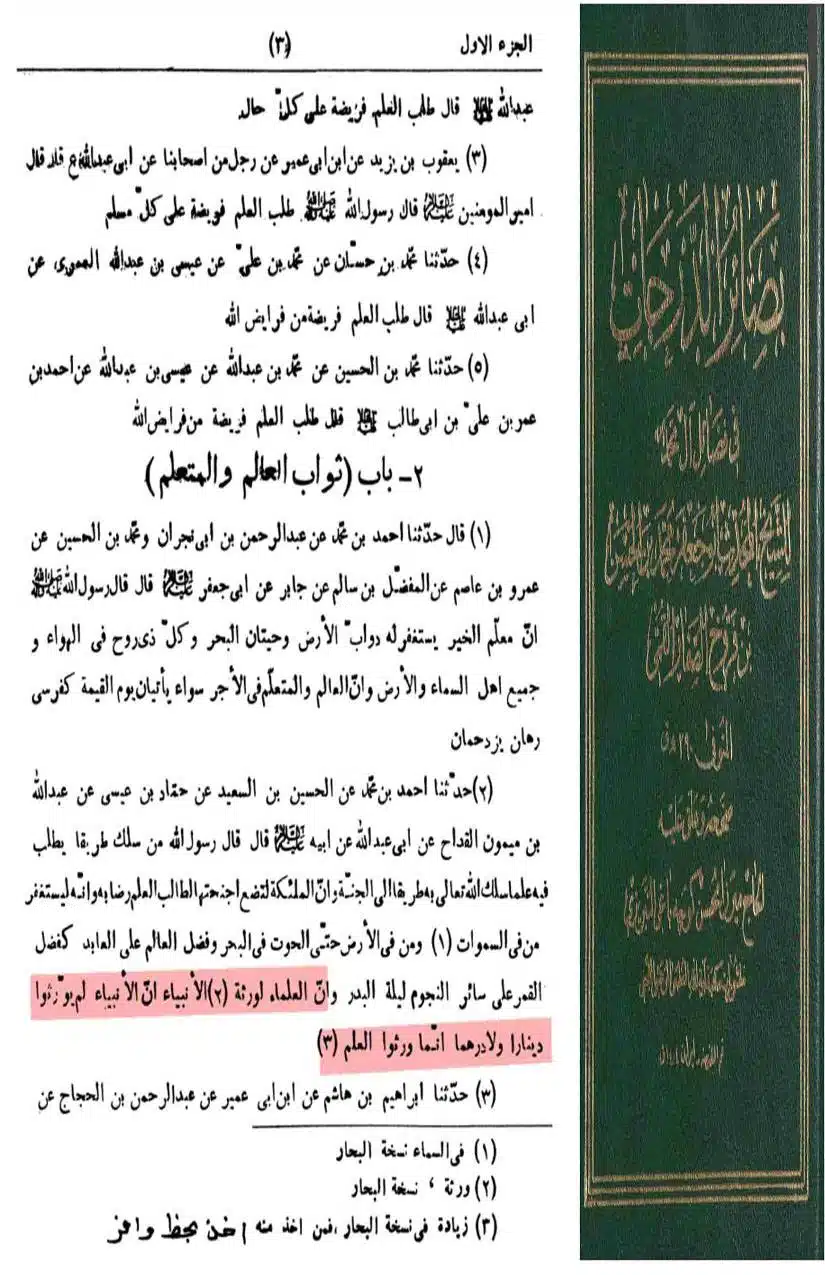 الجزء الاول (٣)
عبدالله عليه السلام قال طلب العلم فريضة على كلّ حال
(٣) يعقوب بن يزيد عن ابن ابى عمير عن رجل من اصحابنا عن ابى عبدالله ع قال قال
امير المومنين عليه السلام قال رسول الله صلى الله عليه وآله طلب العلم فريضة على كلّ مسلم
(٤) حدّثنا محمّد بن حسّان عن محمّد بن علىّ عن عيسى بن عبدالله العمرى عن
ابى عبدالله عليه السلام قال طلب العلم فريضة من فرايض الله
(٥) حدّثنا محمّد بن الحسين عن محمّد بن عبدالله عن عيسى بن عبدالله عن احمد بن
عمر بن علىّ بن ابى طالب عليه السلام قال طلب العلم فريضة من فرايض الله
٢- باب (ثواب العالم والمتعلم)
(١) قال حدّثنا احمد بن محمّد عن عبدالرحمن بن ابى نجران ومحمّد بن الحسين عن
عمرو بن عاصم عن المفضّل بن سالم عن جابر عن ابى جعفر عليه السلام قال قال رسول الله صلى الله عليه وآله
انّ معلّم الخير يستغفر له دوابّ الأرض وحيتان البحر وكلّ ذى روح فى الهواء و
جميع اهل السماء والأرض وانّ العالم والمتعلّم فى الأجر سواء يأتيان يوم القيمة كفرسى
رهان يزدحمان
(٢) حدّثنا احمد بن محمّد عن الحسين بن السعيد عن حمّاد بن عيسى عن عبدالله
بن ميمون القداح عن ابى عبدالله عن ابيه عليه السلام قال قال رسول الله من سلك طريقا يطلب
فيه علما سلك الله تعالى به طريقا الى الجنّة وانّ الملئكة لتضع اجنحتها لطالب العلم رضا به وانّه ليستغفر
من فى السموات (١) ومن فى الأرض حتّى الحوت فى البحر وفضل العالم على العابد كفضل
القمر على سائر النجوم ليلة البدر وانّ العلماء لورثة (٢) الأنبياء انّ الأنبياء لم يورّثوا
دينارا ولا درهما انّما ورثوا العلم (٣)
(٣) حدّثنا ابراهيم بن هاشم عن ابن ابى عمير عن عبدالرحمن بن الحجاج عن
(١) فى السماء نسخة البحار
(٢) ورثة ، نسخة البحار
(٣) زيادة فى نسخة البحار ،فمن اخذ منه اخذ بحظ وافر
بصائر الدرجات
فى فضائل آل محمد
للشيخ الجليل المحدث ابو جعفر محمد بن الحسن
بن فروخ الصفار القمى
المتوفى ٢٩٠ هـ